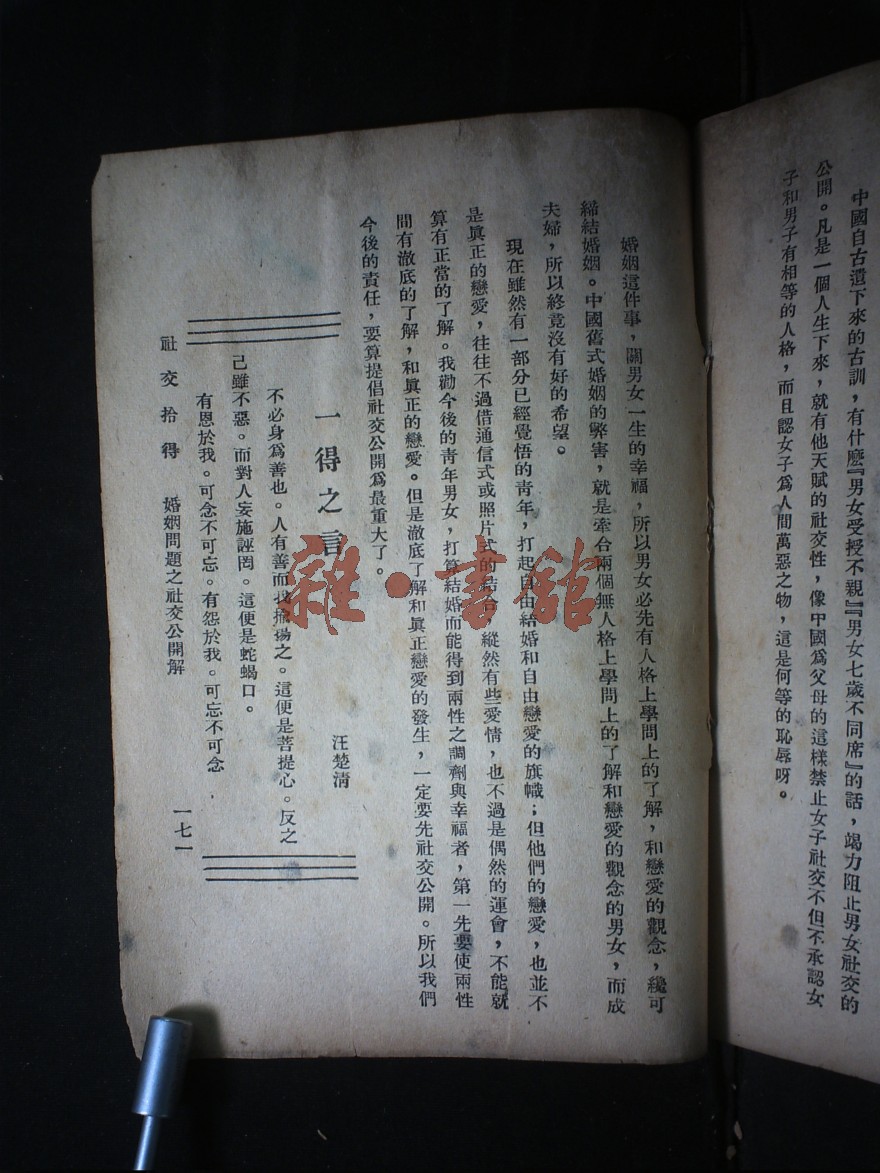 中國自古遺下來的古訓，有什麽『男女受授不親』『男女七歲不同席』的話，竭力阻止男女社交的
公開。凡是一個人生下來，就有他天賦的社交性，像中國爲父母的這樣禁止女子社交不但不承認女
子和男子有相等的人格，而且認女子爲人間萬惡之物，這是何等的恥辱呀。
婚姻這件事，關男女一生的幸福，所以男女必先有人格上學問上的了解，和戀愛的觀念，纔可
締結婚姻。中國舊式婚姻的弊害，就是牽合兩個無人格上學問上的了解和戀愛的觀念的男女，而成
夫婦，所以終竟沒有好的希望。
現在雖然有一部分已經覺悟的青年，打起自由結婚和自由戀愛的旗幟；但他們的戀愛，也並不
是眞正的戀愛，往往不過借通信式或照片式的結合，縱然有些愛情，也不過是偶然的運會，不能就
算有正當的了解。我勸今後的青年男女，打算結婚而能得到兩性之調劑與幸福者，第一先要使兩性
間有澈底的了解，和眞正的戀愛。但是澈底了解和眞正戀愛的發生，一定要先社交公開。所以我們
今後的責任，要算提倡社交公開爲最重大了。
一得之言
汪楚淸
不必身爲善也。人有善而我揄揚之。這便是菩提心。反之
己雖不惡。而對人妄施誣罔。這便是蛇蝎口。
有恩於我。可念不可忘。有怨於我。可忘不可念
社交拾得 婚姻問題之社交公開解
一七一
雜·書館